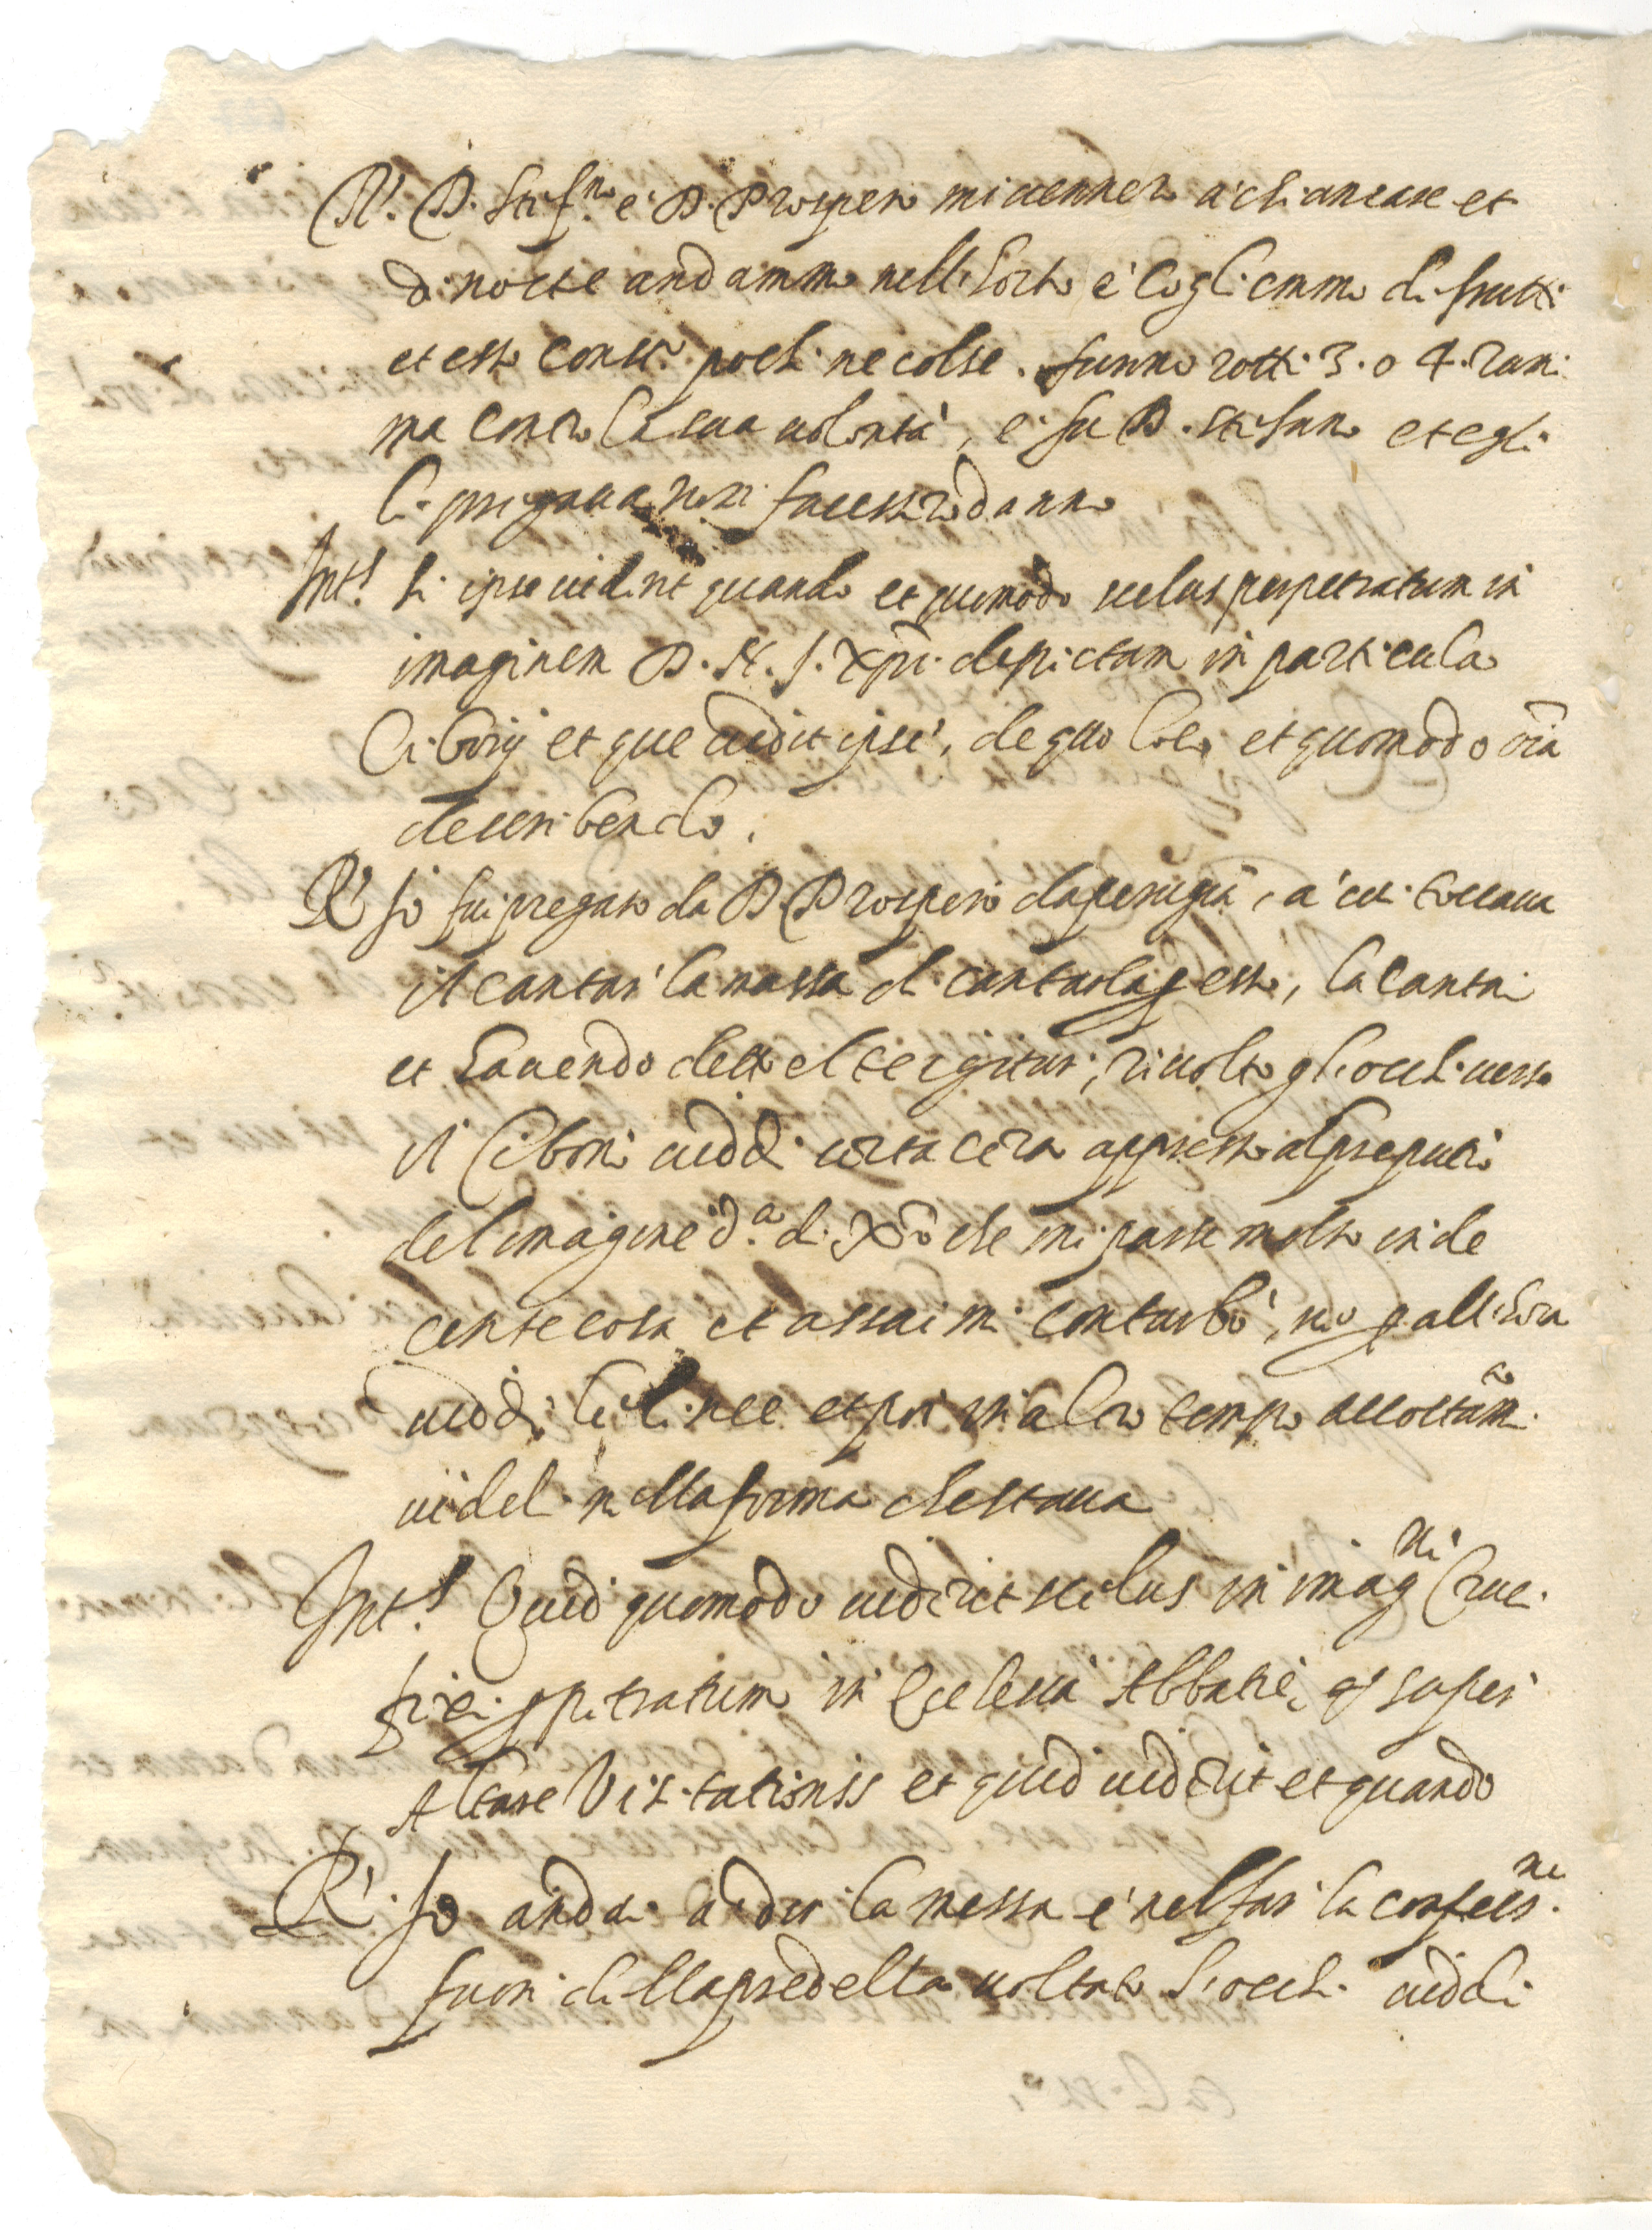 R. D. Stef.no e D. Prospero mi vennero à chiamare et
di notte andammo nell'horto è cogliemmo di frutti
et esso const. pochi ne colse. funno rotti 3. o 4. rami
ma contro la sua volontà, e fu D. Stefano et egli
li pregava non facessero danno
Int.s si ipse viderit quando et quomodo scelus perpetratum in
imaginem D. N. J. Xpi depictam in particula
Ciborij et que vidit ipse, de quo loco et quomodo oia
describendo.
R. Io fui pregato da D Prospero da perugia, à cui toccava
il cantar la messa di cantarla p esso, la cantai
et havendo detto el te igitur, rivolto gli occhi verso
il Ciborio viddi certa cera appresso al preputio
del imagine d.a di Xpo che mi parse molto inde
cente cosa et assai mi conturbò, nò p all'hora
viddi le linee et poi in altro tempo accostam.
videl nella forma che stava
Int.s Quid quomodo viderit scelus in imag.ni Cruci
fixi ppetratum in Ecclesia Abbatie, q super
Altare Visitationis et quid viderit et quando
R. Io andai a dir la messa e nel far la confess.ne
fuori della predella voltato l'occhi viddi